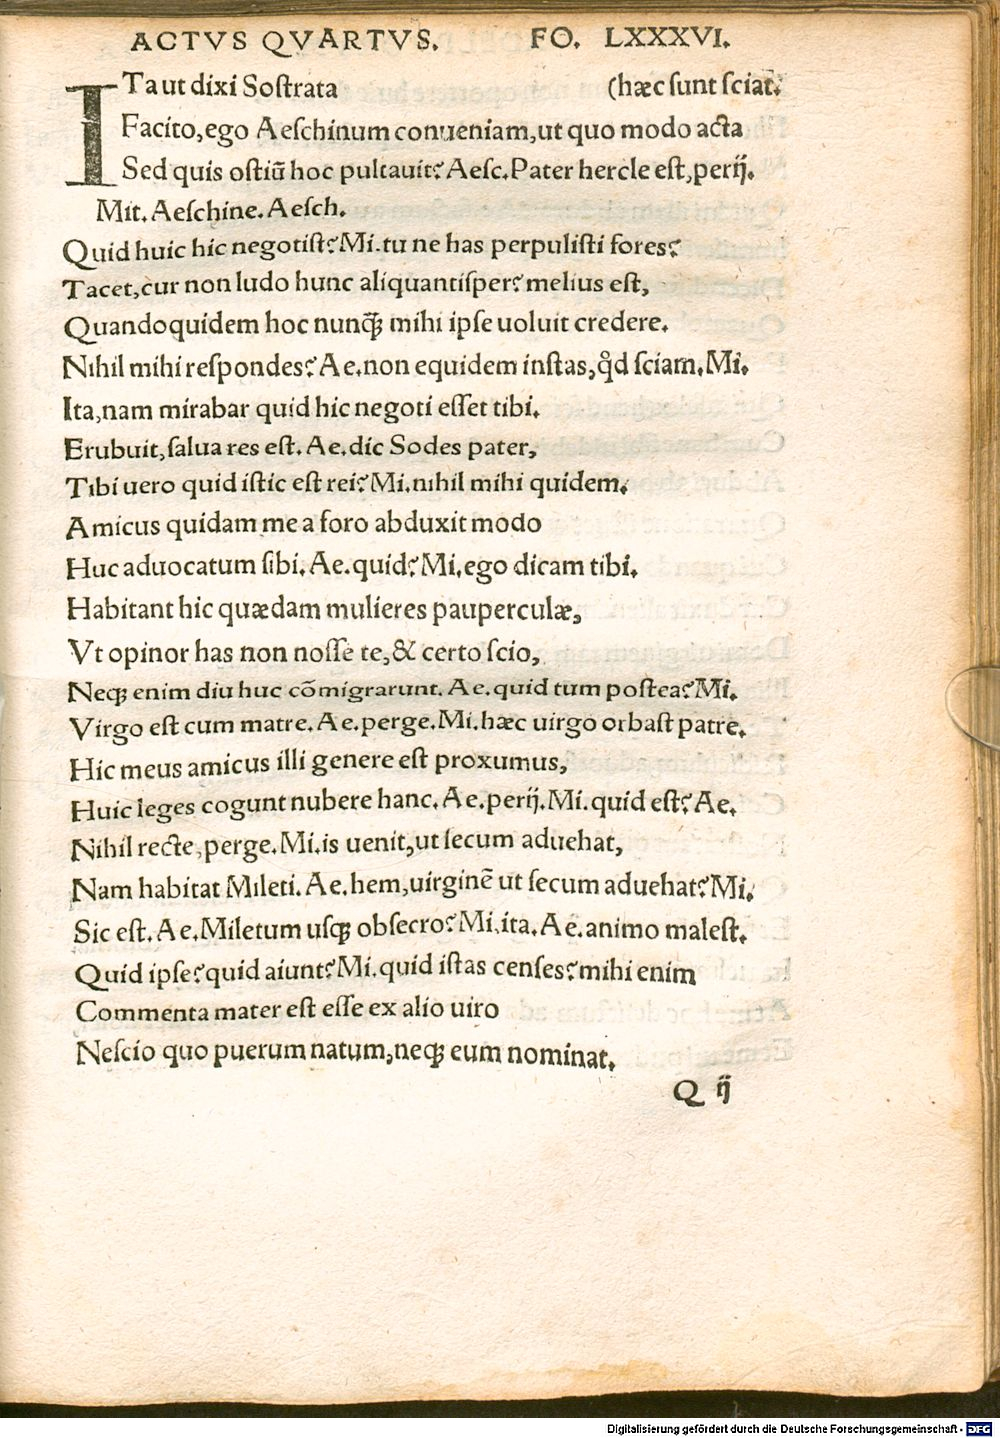 ACTVS QVARTVS. FO. LXXXVI.
ITa ut dixi Soſtrata (hæc ſunt ſciat:
Facito,ego Aeſchinum conueniam,ut quo modo acta
Sed quis oſtiũ hoc pultauit? Aeſc.Pater hercle eſt,perij.
Mit. Aeſchine. Aeſch.
Quid huic hic negotiſt? Mi.tu ne has perpuliſti fores?
Tacet,cur non ludo hunc aliquantiſper? melius eſt,
Quandoquidem hoc nunꝗ̃ mihi ipſe uoluit credere.
Nihil mihi reſpondes? Ae.non equidem inſtas,qd̉ ſciam.Mi.
Ita,nam mirabar quid hic negoti eſſet tibi.
Erubuit,ſalua res eſt. Ae.dic Sodes pater,
Tibi uero quid iſtic eſt rei? Mi.nihil mihi quidem.
Amicus quidam me a foro abduxit modo
Huc aduocatum ſibi. Ae.quid? Mi.ego dicam tibi.
Habitant hic quædam mulieres pauperculæ,
Vt opinor has non noſſe te,& certo ſcio,
Neqꝫ enim diu huc cõmigrarunt. Ae.quid tum poſtea? Mi.
Virgo eſt cum matre. Ae.perge.Mi.hæc uirgo orbaſt patre.
Hic meus amicus illi genere eſt proxumus,
Huic leges cogunt nubere hanc. Ae.perij.Mi.quid eſt? Ae.
Nihil recte,perge.Mi.is uenit,ut ſecum aduehat,
Nam habitat Mileti. Ae.hem,uirginẽ ut ſecum aduehat? Mi.
Sic eſt. Ae.Miletum uſqꝫ obſecro? Mi.ita. Ae.animo maleſt.
Quid ipſe? quid aiunt? Mi.quid iſtas cenſes? mihi enim
Commenta mater eſt eſſe ex alio uiro
Neſcio quo puerum natum,neqꝫ eum nominat.
Q ij
Digitalisierung gefördert durch die Deutsche Forschungsgemeinschaft - DFG